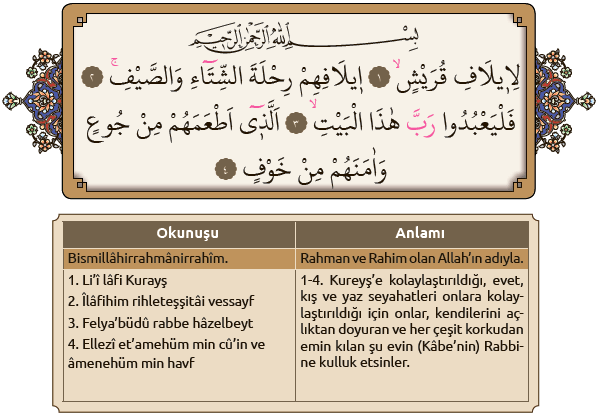 بِسْمِ اللّٰهِ الرَّحْمٰنِ الرَّحٖيمِ
لِاٖيلَافِ قُرَيْشٍۙ ﴿١﴾ اٖيلَافِهِمْ رِحْلَةَ الشِّتَٓاءِ وَالصَّيْفِۚ ﴿٢﴾
فَلْيَعْبُدُوا رَبَّ هٰذَا الْبَيْتِۙ ﴿٣﴾ اَلَّذٖٓي اَطْعَمَهُمْ مِنْ جُوعٍ
وَاٰمَنَهُمْ مِنْ خَوْفٍ ﴿٤﴾
Okunuşu
Bismillâhirrahmânirrahîm.
1. Li’î lâfi Kurayş
2. Îlâfihim rihleteşşitâi vessayf
3. Felya’büdû rabbe hâzelbeyt
4. Ellezî et’amehüm min cû’in ve
âmenehüm min havf
Anlamı
Rahman ve Rahim olan Allah’ın adıyla.
1-4. Kureyş’e kolaylaştırıldığı, evet,
kış ve yaz seyahatleri onlara kolay-
laştırıldığı için onlar, kendilerini aç-
lıktan doyuran ve her çeşit korkudan
emin kılan şu evin (Kâbe’nin) Rabbi-
ne kulluk etsinler.